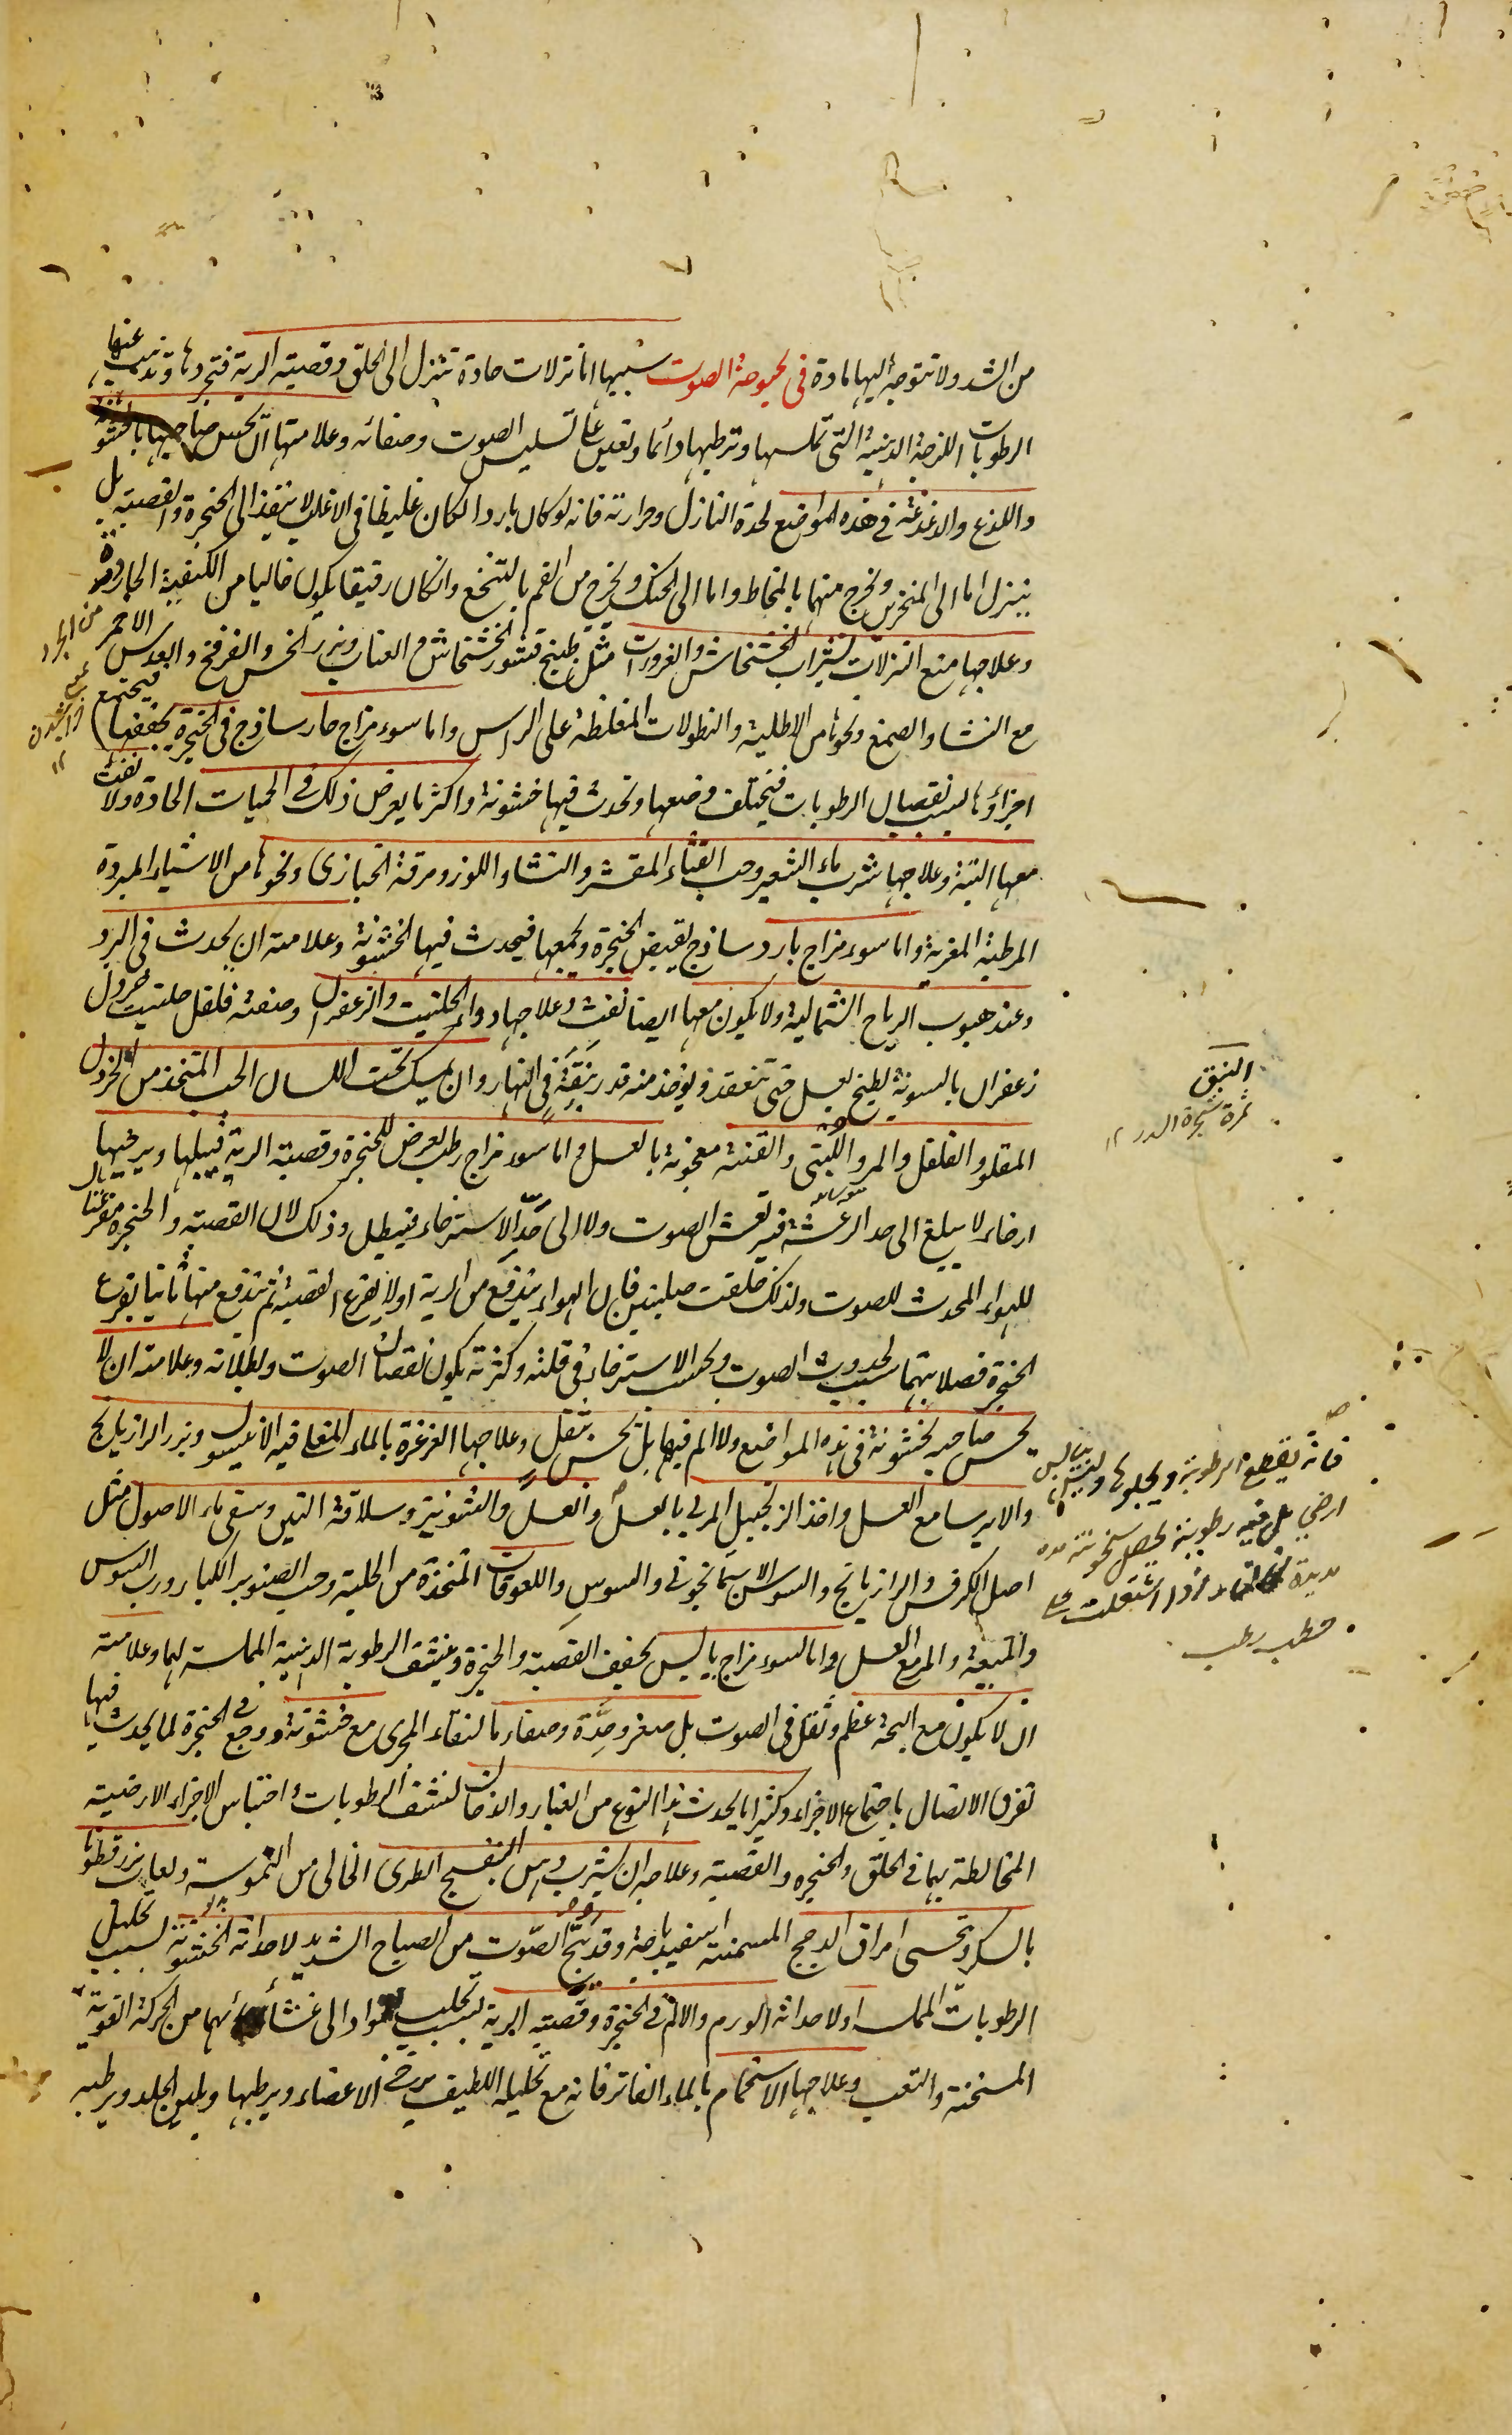 من الشد ولا تتوجه اليها مادة فى بحوحة الصوت سببها اما نزلات حادة تنزل الى الحلق وقصبة الرية فتجردها وتذيب عنها
الرطوبات اللزجة الدهنية التى تملسها وترطبها دائما وتعين على تسليس الصوت وصفائه وعلامتها ان يحس صاحبها بالخشونة
واللذع والدغدغة فى هذه المواضع لحدة النازل وحرارته فانه لو كان باردا لكان غليظا فى الاغلب لا ينفذ الى الحنجرة والقصبة بل
ينزل اما الى المنخرين ويخرج منهما بالمخاط واما الى الحنك ويخرج من الفم بالتنخع وان كان رقيقا يكون خاليا من الكيفية الحادة
وعلاجها منع النزلات بشراب الخشخاش والغرورات مثل طبيخ قشور الخشخاش والعناب وبزر الخس والفرفخ والعدس الاحمر
مع النشا والصمغ ونحوها من الاطلية والنطولات المغلظة على الراس واما سوء مزاج حار ساذج فى الحنجرة يجففها فيجتمع
اجزاؤها بسبب نقصان الرطوبات فيختلف وضعها وتحدث فيها خشونة واكثر ما يعرض ذلك فى الحميات الحادة ولا نفث
معها البتة وعلاجها شرب ماء الشعير وحب القثاء المقشر والنشا واللوز ومرقة الخبازى ونحوها من الاشياء المبردة
المرطبة المغرية واما سوء مزاج بارد ساذج يقبض الحنجرة ويجمعها فيحدث فيها الخشونة وعلامته ان يحدث فى البرد
وعند هبوب الرياح الشمالية ولا يكون معها ايضا نفث وعلاجها دواء الحلتيت والزعفران وصنعته فلفل حلتيت خردل
زعفران بالسوية يطبخ بعسل حتى تنعقد ويؤخذ منه قدر نبقة فى النهار وان يمسك تحت اللسان الحب المتخذ من الخردل
المقلو والفلفل والمر واللبنى والقنة معجونة بالعسل واما سوء مزاج رطب يعرض للحنجرة وقصبة الرية فيبلها ويرخيها
ارخاء لا يبلغ الى حد الرعشة فيرتعش الصوت ولا الى حد الاسترخاء فيبطل وذلك لان القصبة والحنجرة مقرعتان
للهواء المحدث للصوت ولذلك خلقت صلبتين فان الهواء يندفع من الرية اولا يقرع القصبة ثم يندفع منها ثانيا يقرع
الحنجرة فصلابتهما سبب لحدوث الصوت وبحسب الاسترخاء فى قلته وكثرته يكون نقصان الصوت وبطلانه وعلامته ان لا
يحس صاحبه بخشونة فى هذه المواضع ولا الم فيها بل يحس بثقل وعلاجها الغرغرة بالماء المغلى فيه الانيسون وبزر الرازيانج
والايرسا مع العسل واخذ الزنجبيل المربى بالعسل والعسل والشونيز وسلاقة التين وسقى ماء الاصول مثل
اصل الكرفس والرازيانج والسوسن الاسمانجونى والسوس واللعوقات المتخذة من الحلبة وحب الصنوبر الكبار ورب السوس
والميعة والمر مع العسل واما لسوء مزاج يابس يجفف القصبة والحنجرة وينشف الرطوبة الدهنية المملسة لهما وعلامته
ان لا يكون مع البحة عظم وثقل فى الصوت بل صغر وحدة وصفاء ما لنقاء المجرى مع خشونة ووجع فى الحنجرة لما يحدث فيها
تفرق الاتصال باجتماع الاجزاء وكثيرا ما يحدث هذا النوع من الغبار والدخان لنشف الرطوبات واحتباس الاجزاء الارضية
المخالطة بهما فى الحلق والحنجرة والقصبة وعلاجه ان يشرب دهن البنفسج الطرى الخالى من النموسة ولعاب بزر قطونا
بالسكر وتحسى امراق الدجج المسمنة اسفيدباجة وقد يبح الصوت من الصياح الشديد لاحداثه الخشونة بسبب تحليل
الرطوبات المملسة او لاحداثه الورم والالم فى الحنجرة وقصبة الرية بسبب تحلب مواد الى غشائهما من الحركة القوية
المسخنة والتعب وعلاجها الاستحمام بالماء الفاتر فانه مع تحليله اللطيف يرخى الاعضاء ويرطبها ويلين الجلد ويرطبه
النبق
ثمرة شجرة السدر ١٢
فانه يقطع الرطوبة ويجلوها
حطب رطب